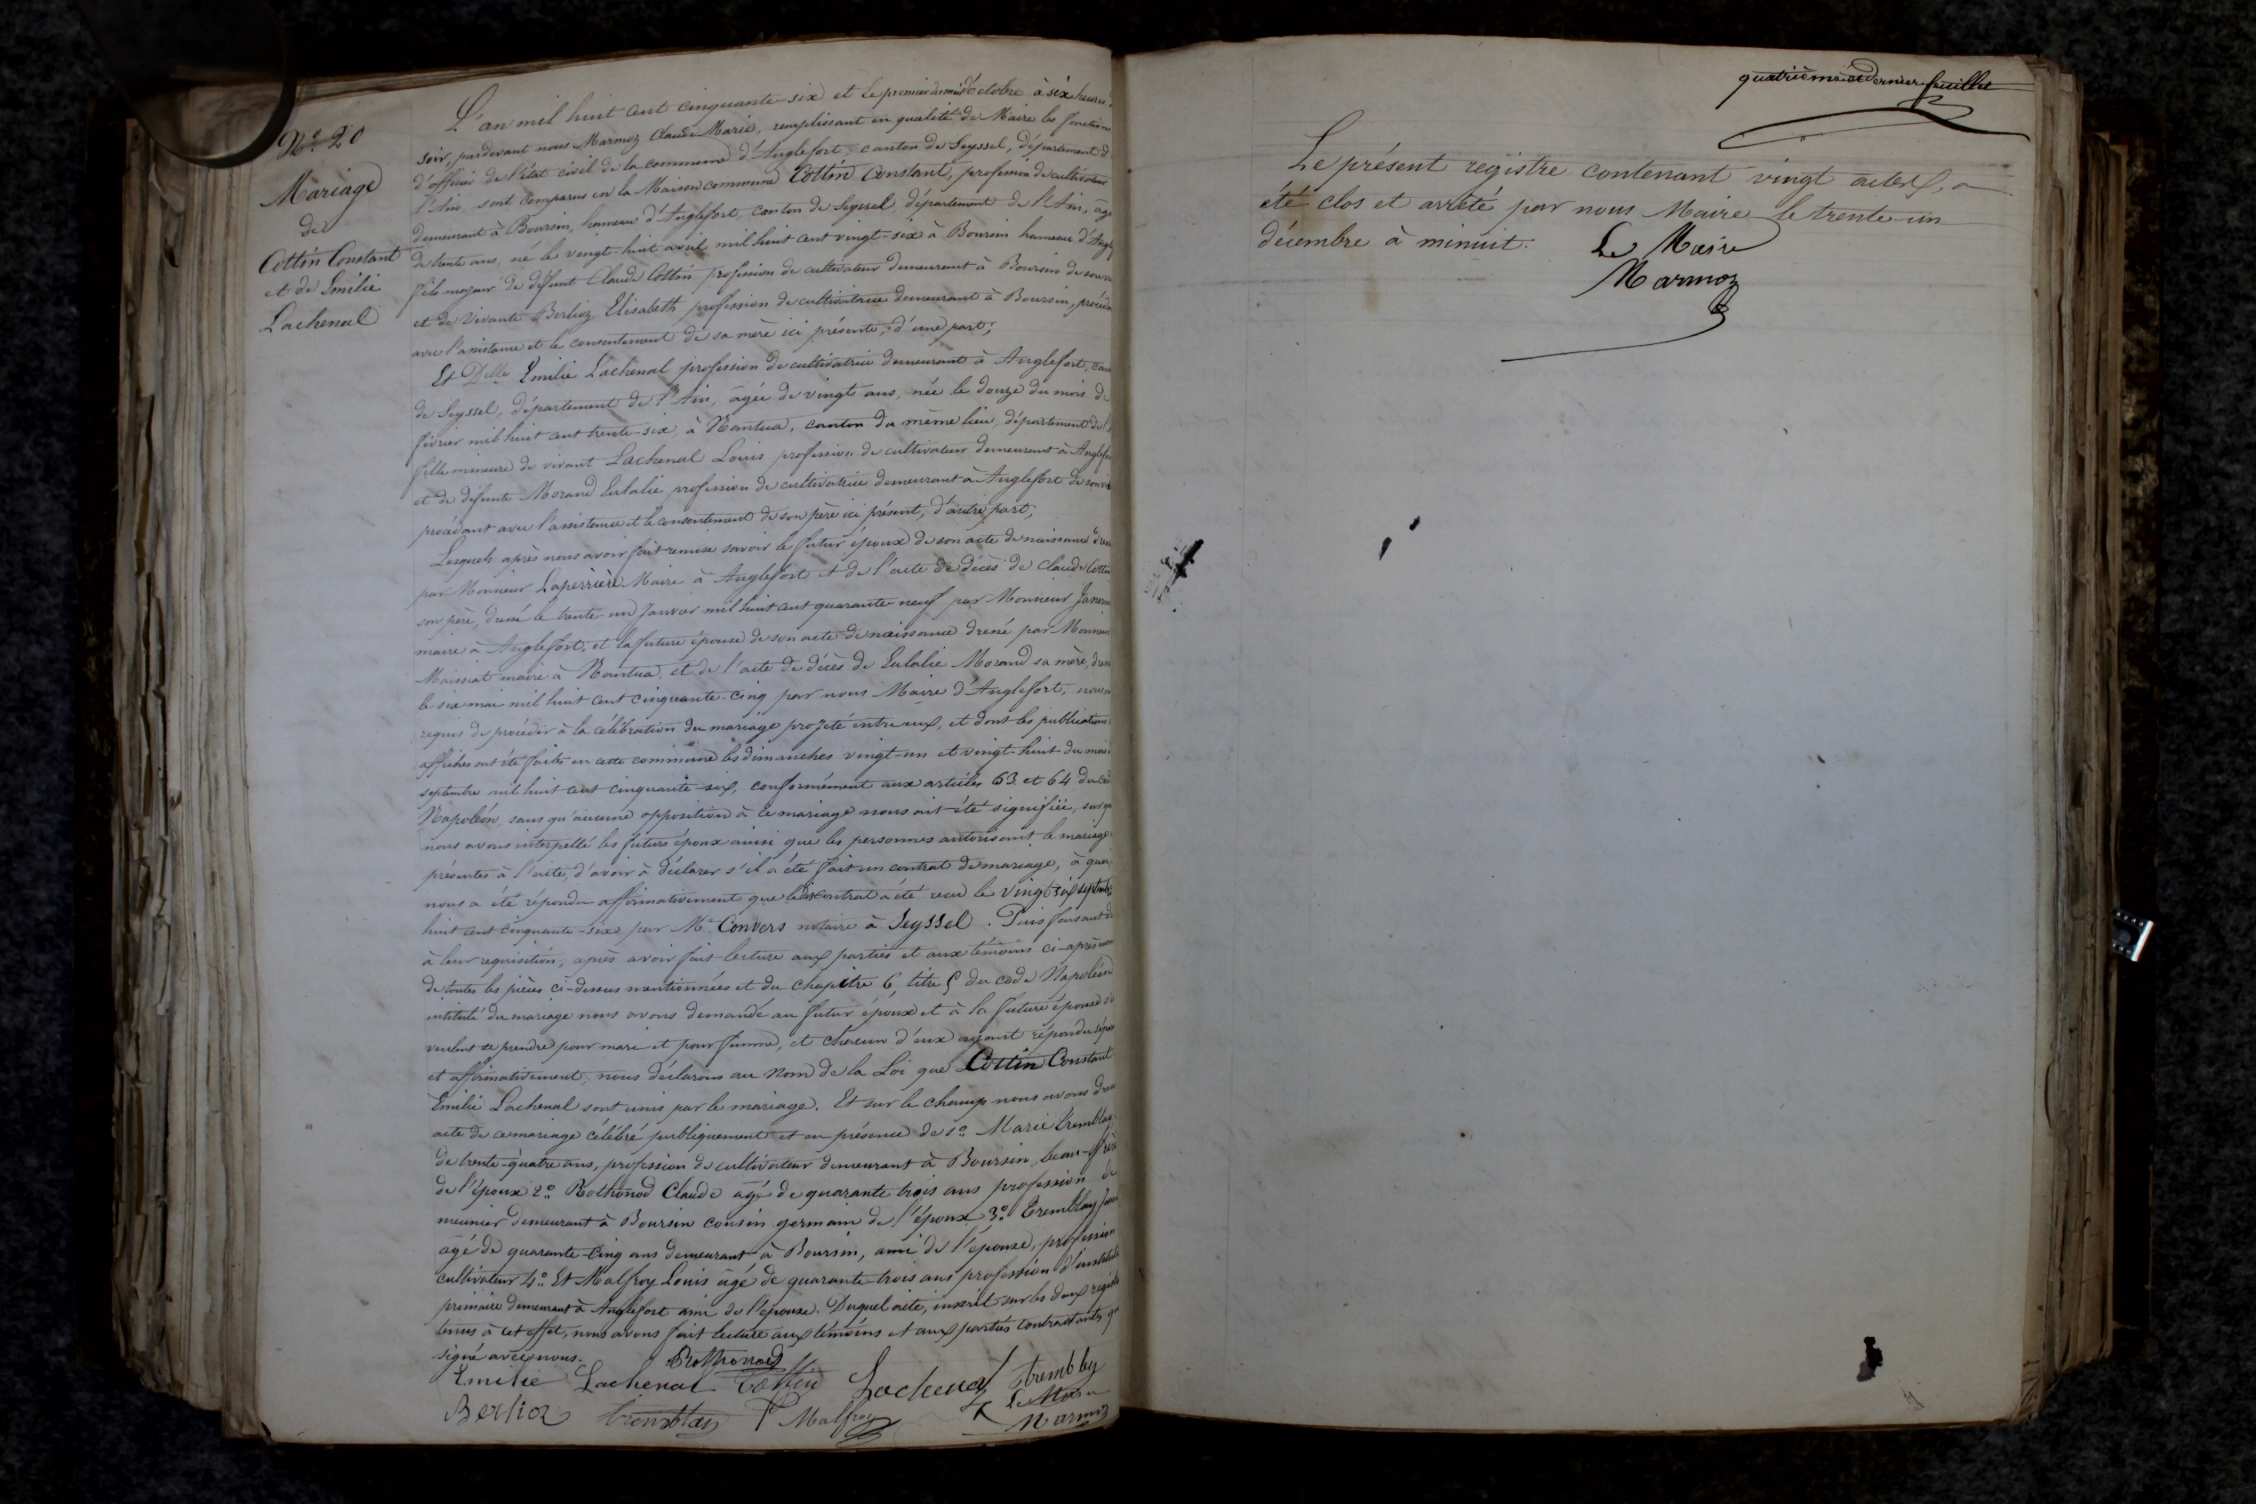 N.º 20
Mariage
de
Cottin Constant
et de Emilie
Lachenal
L'an mil huit cent cinquante-six et le premier du mois d'Octobre à six heures
soir, pardevant nous Marmoz Claude Marie, remplissant en qualité de Maire les fonctions
d'officier de l'état civil de la commune d'Anglefort, canton de Seyssel, département d
l'Ain sont comparus en la Maison commune Cottin Constant, profession de cultivateur
demeurant à Boursin, hameau d'Anglefort, canton de Seyssel, département de l'Ain, âgé
de trente ans, né le vingt-huit avril mil huit cent vingt-six à Boursin hameau d'Angl
fils majeur de défunt Claude Cottin profession de cultivateur demeurant à Boursin de son v
et de vivante Berlioz Elisabeth profession de cultivatrice demeurant à Boursin, procéda
avec l'assistance et le consentement de sa mère ici présente, d'une part;
Et Delle Emilie Lachenal profession de cultivatrice demeurant à Anglefort, can
de Seyssel, département de l'Ain, âgée de vingt ans, née le douze du mois de
février mil huit cent trente-six à Nantua, canton du même lieu, département de l'
fille mineure de vivant Lachenal Louis profession de cultivateur demeurant à Anglef
et de défunte Morand Eulalie profession de cultivatrice demeurant à Anglefort de son vi
procédant avec l'assistance et le consentement de son père ici présent, d'autre part;
Lesquels après nous avoir fait remise savoir le futur époux de son acte de naissance dre
par Monsieur Laperrière Maire à Anglefort et de l'acte de décès de Claude Cottin
son père, dressé le trente-un Janvier mil huit cent quarante-neuf par Monsieur
maire à Anglefort, et la future épouse de son acte de naissance dressé par Monsieu
Maissiat maire à Nantua et de l'acte de décès de Eulalie Morand sa mère, dres
le six mai mil huit cent cinquante-cinq par nous Maire d'Anglefort, nous o
requis de procéder à la célébration du mariage projeté entre eux, et dont les publications
affiches ont été faites en cette commune les dimanches vingt-un et vingt-huit du mois
septembre mil huit cent cinquante-six, conformément aux articles 63 et 64 du co
Napoléon, sans qu'aucune opposition à ce mariage nous ait été signifiée, sur q
nous avons interpellé les futurs époux ainsi que les personnes autorisant le mariage
présentes à l'acte, d'avoir à déclarer s'il a été fait un contrat de mariage, à quoi
nous a été répondu affirmativement que ledit contrat a été reçu le vingt six septembre
huit cent cinquante-six par Me Convers notaire à Seyssel. Puis faisant d
à leur requisition, après avoir fait lecture aux parties et aux témoins ci-après
de toutes les pièces ci-dessus mentionnées et du chapitre 6, titre 5 du code Napoléon
intitulé du mariage nous avons demandé au futur époux et à la future épouse s'ils
veulent se prendre pour mari et pour femme, et chacun d'eux ayant répondu sépar
et affirmativement, nous déclarons au Nom de la Loi que Cottin Constant
Emilie Lachenal sont unis par le mariage. Et sur le champ nous avons dres
acte de ce mariage célébré publiquement et en présence de 1º Marie Tremblay
de trente-quatre ans, profession de cultivateur demeurant à Boursin beau-frère
de l'époux 2º Rothonod Claude âgé de quarante trois ans profession de
meunier demeurant à Boursin cousin germain de l'époux 3º Tremblay
âgé de quarante-cinq ans demeurant à Boursin, ami de l'épouse, profession
cultivateur 4º Et Malfroy Louis âgé de quarante-trois ans profession d'instituteu
primaire demeurant à Anglefort ami de l'épouse. Duquel acte, inscrit sur les deux registr
tenus à cet effet, nous avons fait lecture aux témoins et aux parties contractantes, q
signé avec nous.
Rothonod
Emilie Lachenal Cottin Lachenal Trembley
Berlioz Tremblay Malfroy Le Maire
Marmoz
quatrième et dernier feuillet
Le présent registre contenant vingt actes, a
été clos et arrêté par nous Maire le trente-un
décembre à minuit.
Le Maire
Marmoz